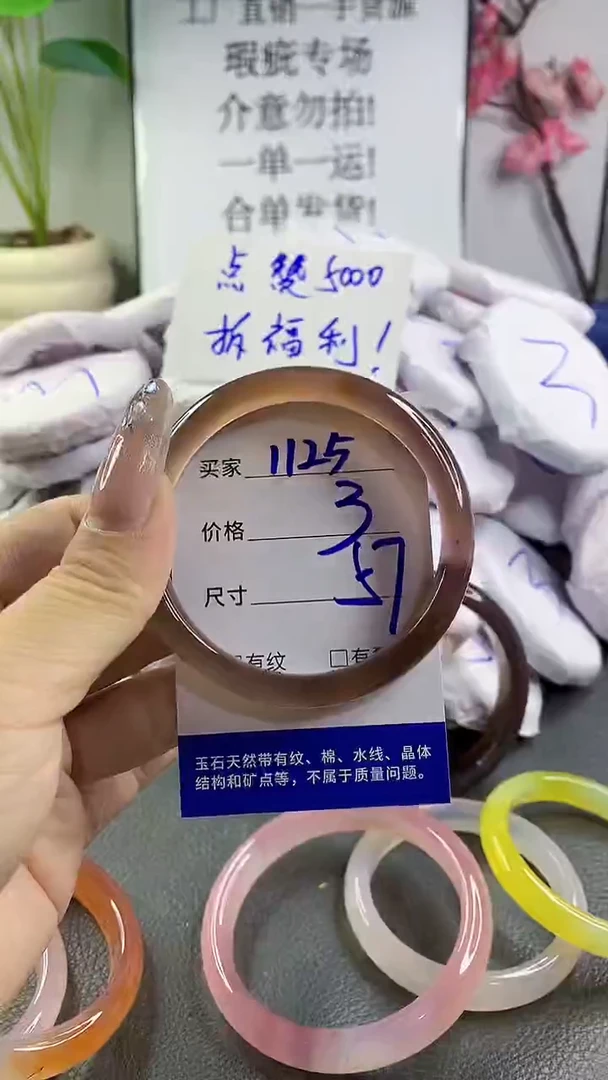 工厂直销一手货源
瑕疵专场
介意勿拍!
一单一运!
合单发货!
点赞5000
拆福利!
买家 1125
价格 3
尺寸 57
有纹
□有
玉石天然带有纹、棉、水线、晶体
结构和矿点等，不属于质量问题。
3